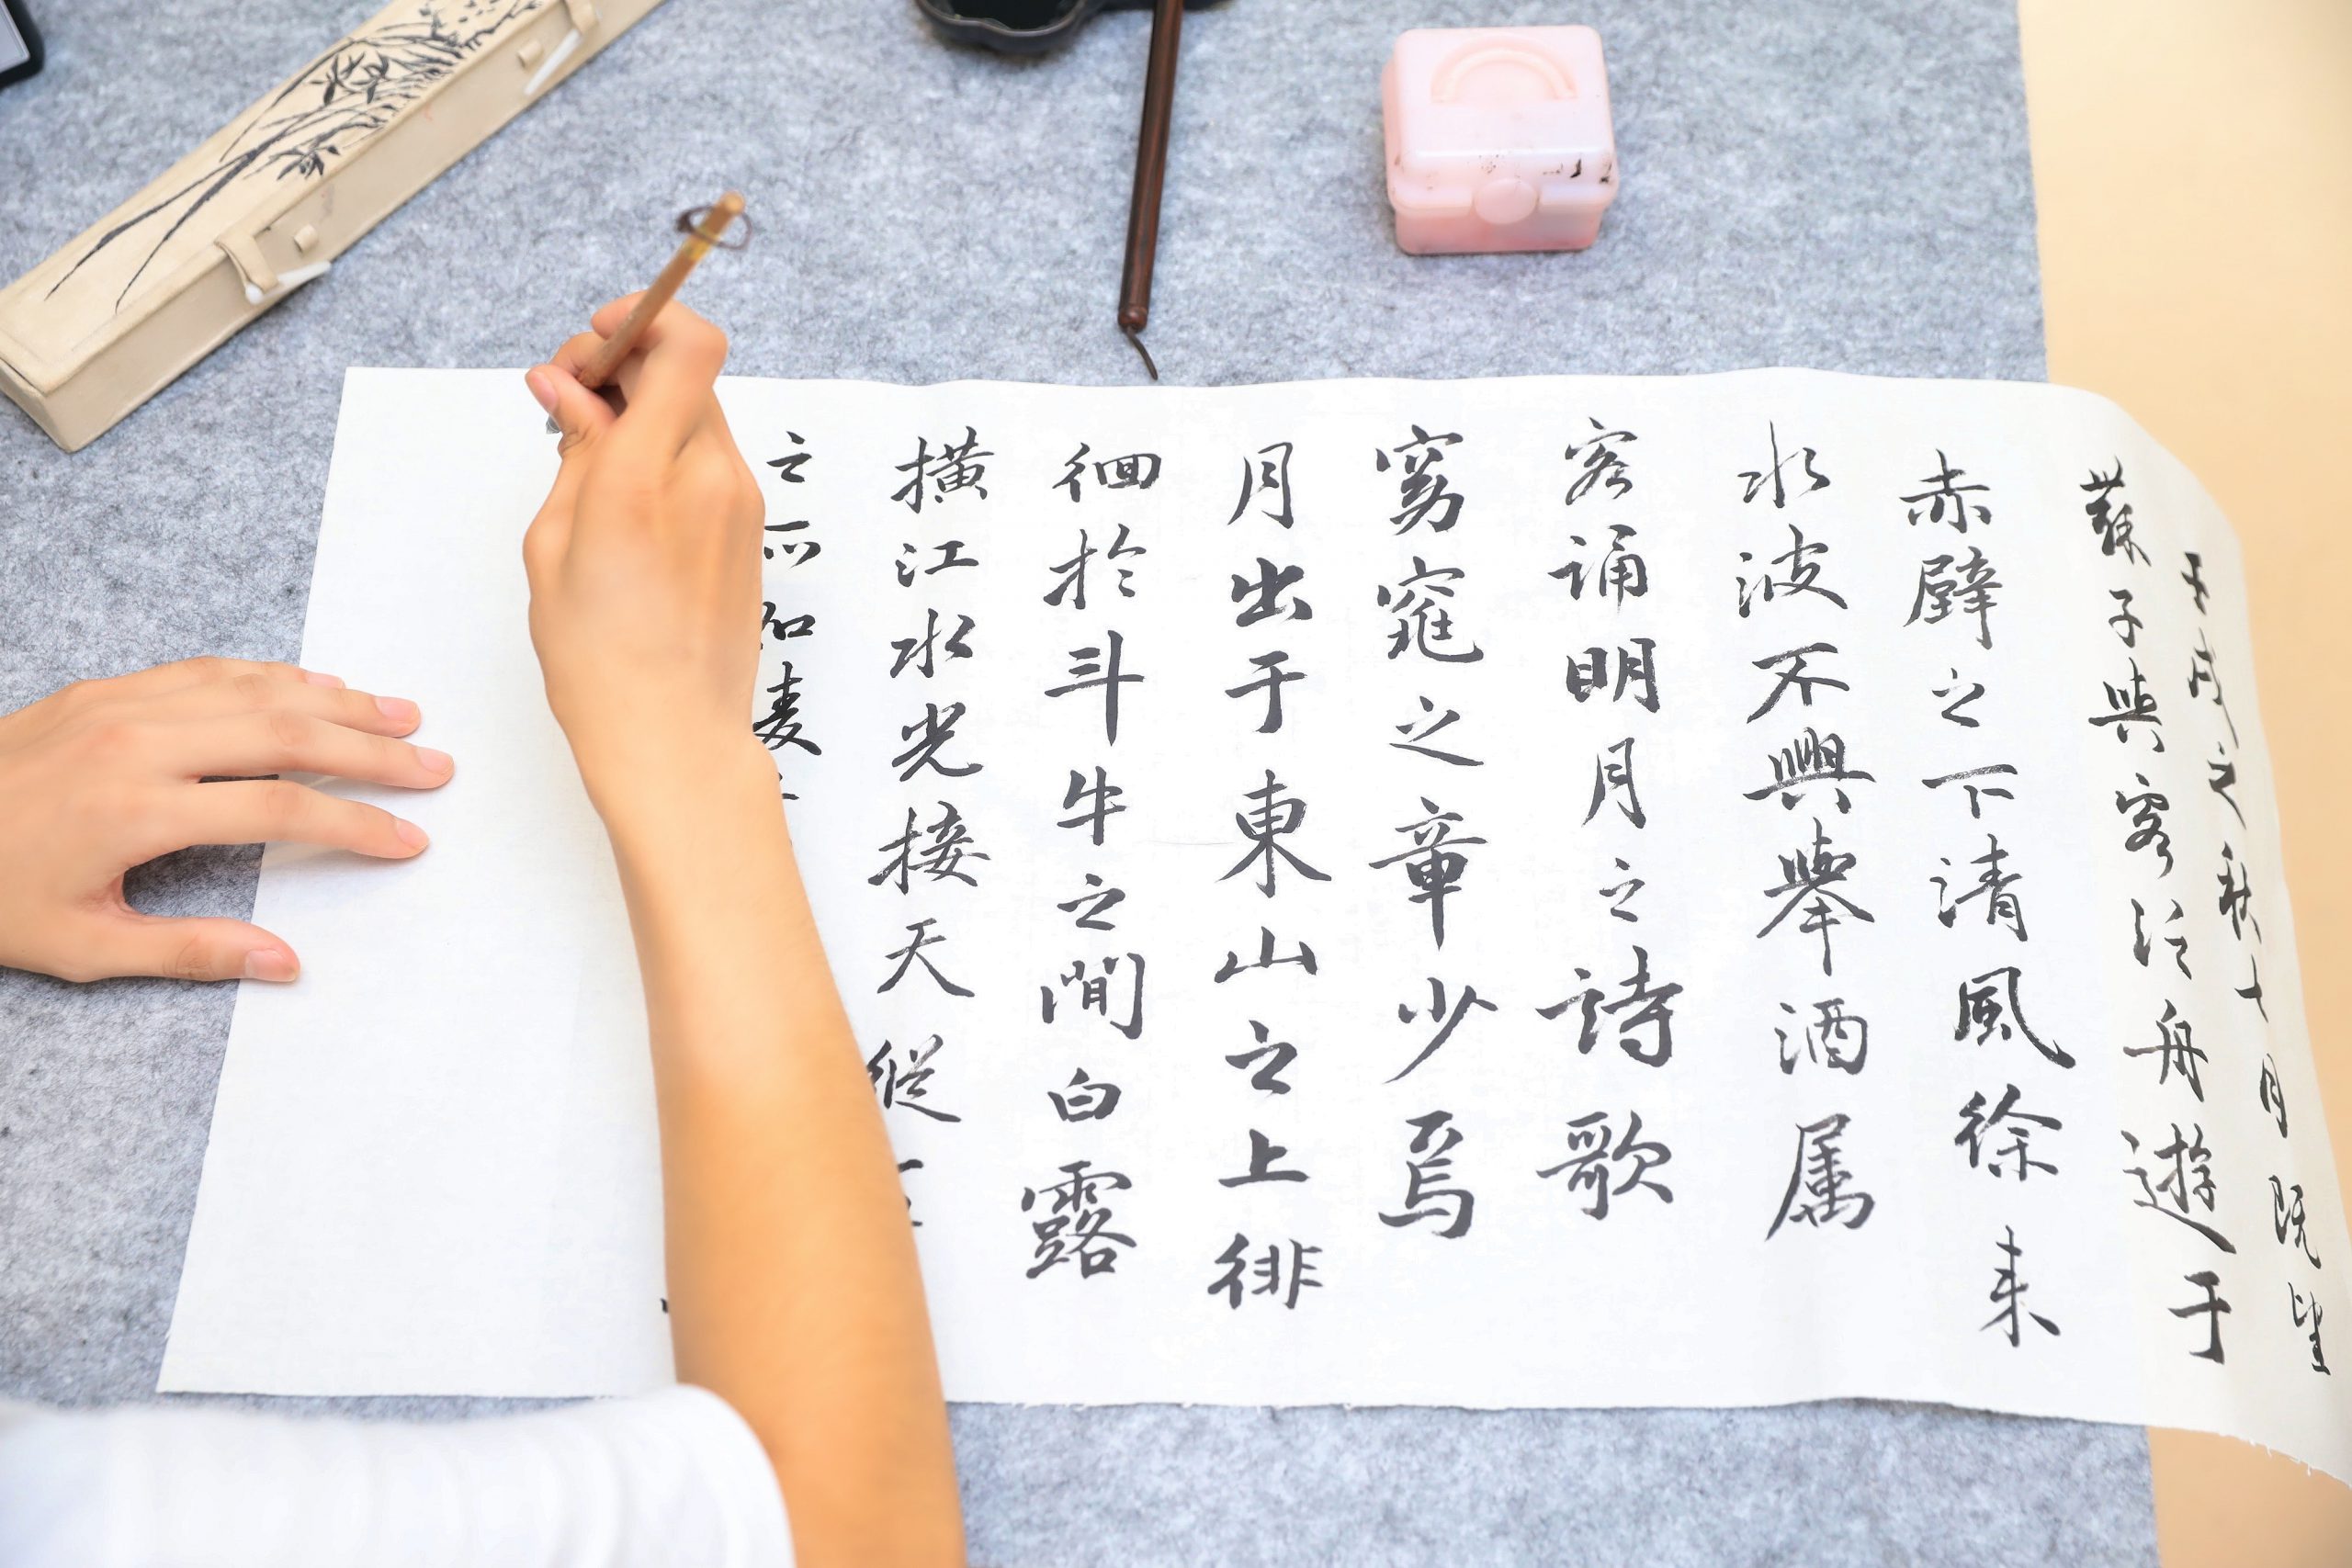 壬戌之秋七月既望
蘇子與客泛舟遊于
赤壁之下清風徐来
水波不興舉酒属
客誦明月之詩歌
窈窕之章少焉
月出于東山之上徘
徊於斗牛之間白露
橫江水光接天縱
之所如